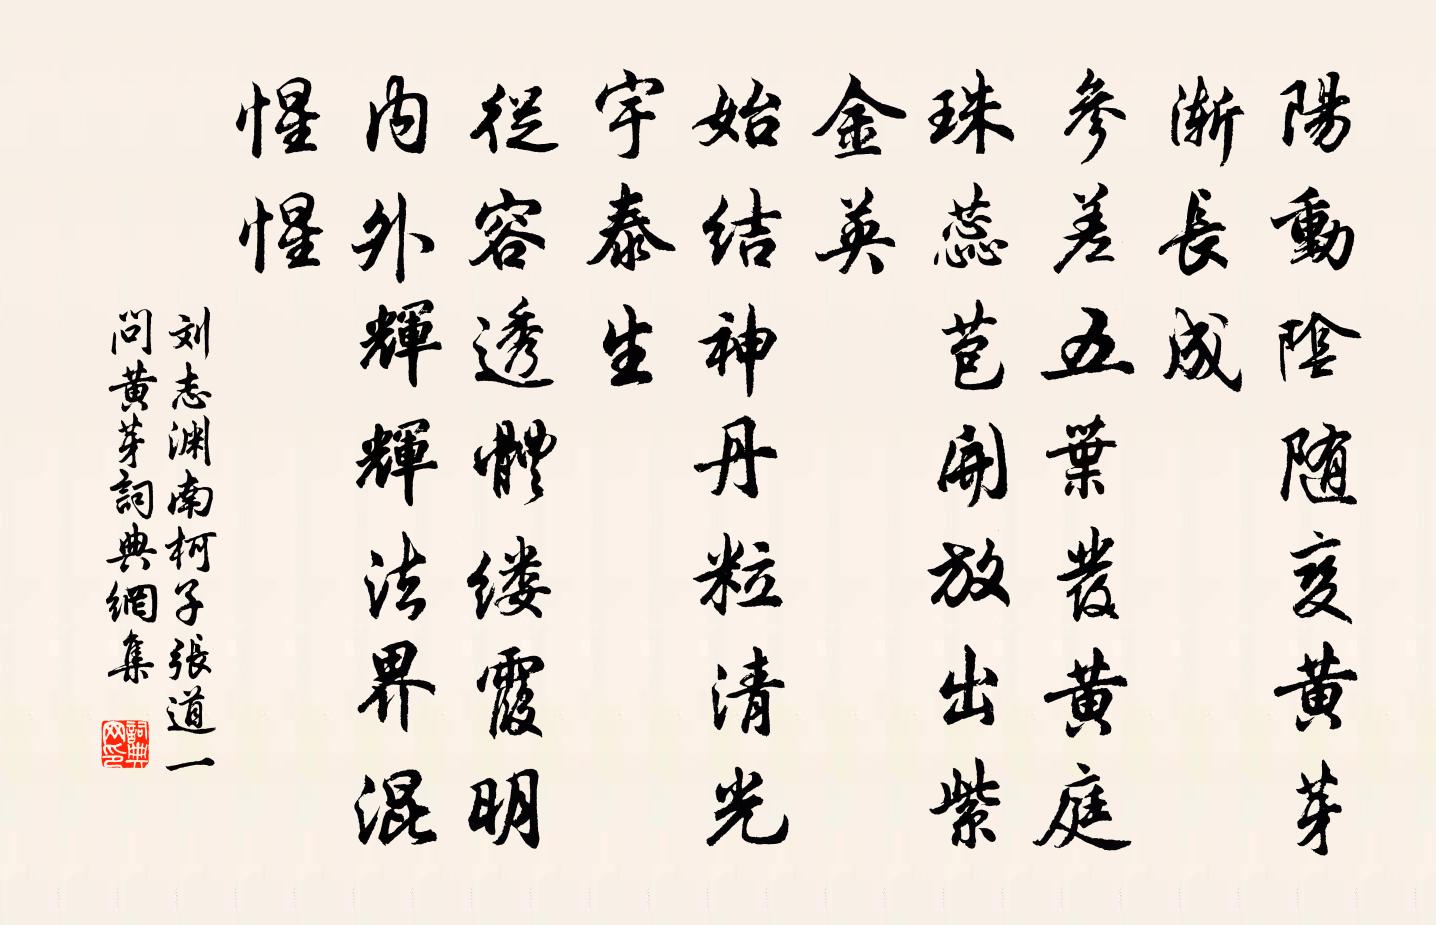 陽動陰随变黄芽
漸長成
參差五葉發黄庭
珠蕊苞開放出紫
金英
始结神丹粒清光
宇泰生
從容透體缕霞明
内外輝輝法界混
惺惺
刘志渊南柯子張道一
問黄芽詞典網集
詞典网印